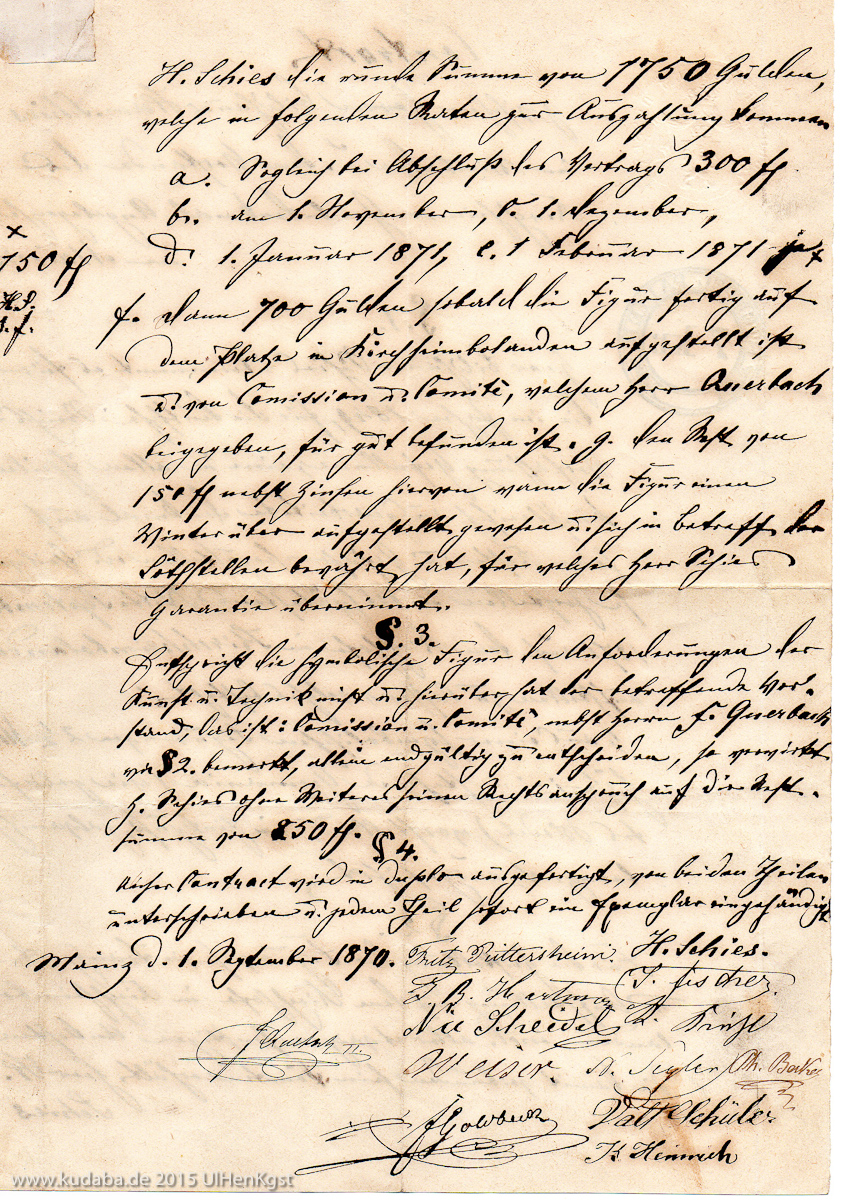 H. Schies die runde Summe von 1750 Gulden,
welche in folgenden Raten zur Auszahlung kommen
a. Sogleich bei Abschluß des Vertrags 300 fl
b. am 1. November, c. 1. Dezember,
d. 1. Januar 1871, e. 1 Februar 1871 je x
x
150 fl
H. S.
J. f.
f. dann 700 Gulden sobald die Figur fertig auf
dem Platze in Kirchheimbolanden aufgestellt ist
u. von Comission u. Comité, welchem Herr Querbach
beigegeben, für gut befunden ist. g. den Rest von
150 fl nebst Zinsen hiervon wann die Figur einen
Winter über aufgestellt gewesen u. sich in betreff der
Löthstellen bewährt hat, für welches Herr Schies
Garantie übernimmt.
§. 3.
Entspricht die symbolische Figur den Anforderungen der
Kunst u. Technik nicht u. hierüber hat der betreffende Vor-
stand, das ist: Comission u. Comité, nebst Herrn F. Querbach
wie § 2. bemerkt, allein endgültig zu entscheiden, so verwirkt
H. Schies ohne Weiteres seinen Rechtsanspruch auf die Rest-
summe von 850 fl.
§ 4.
Dieser Contract wird in duplo ausgefertigt, von beiden Theilen
unterschrieben u. jedem Theil sofort ein Exemplar eingehändigt
Mainz d. 1. September 1870. Fritz Rittersheim. H. Schies.
J. B. Hartman J. Fischer.
Nic Scheidel K.
Weiser. N. Ph. Becker
Valt Schüler
K Heinrich
www.kudaba.de 2015 UlHenKgst